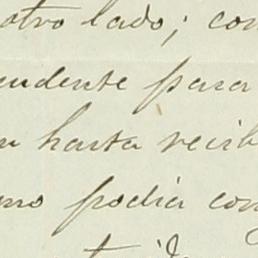 otro lado; con
endente para
n hasta recib
mo podia con